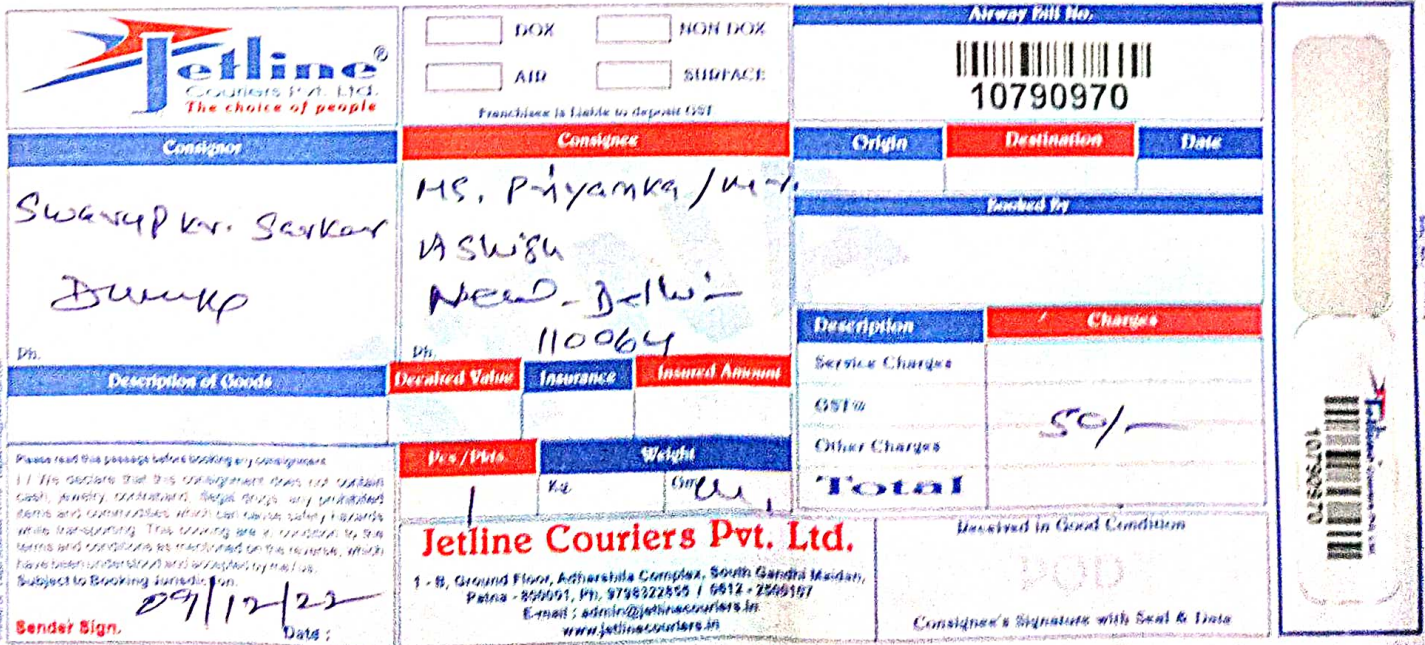 Jetline®
Couriers Pvt. Ltd.
The choice of people
DOX
NON DOX
AIR
SURFACE
Franchisee is Liable to deposit GST
Airway Bill No.
10790970
Consignor
Swarup Kr. Sarkar
Ph.
Consignee
MS. Priyanka / Mr.
Ashish
New-Delhi-
110064
Ph.
Origin
Destination
Date
Booked By
Description of Goods
Decalred Value
Insurance
Insured Amount
Description
Charges
Service Charges
GST%
Other Charges
50/-
Total
Pcs / Pkts.
Weight
1
Kg.
Gm.
Please read this passage before booking any consignment
I / We declare that this consignment does not contain
cash, jewelry, contraband, illegal drugs, any prohibited
items and commodities which can cause safety hazards
while transporting. This booking are in condition to the
terms and conditions as mentioned on the reverse, which
have been understood and accepted by me / us.
Subject to Booking Jurisdiction.
09/12/22
Sender Sign.
Date :
Jetline Couriers Pvt. Ltd.
1 - B, Ground Floor, Adharshila Complex, South Gandhi Maidan,
Patna - 800001, Ph. 9798322855 / 0612 - 2500107
E-mail : admin@jetlinecouriers.in
www.jetlinecouriers.in
Received in Good Condition
POD
Consignee's Signature with Seal & Date
Jetline Couriers Pvt. Ltd.
10790970